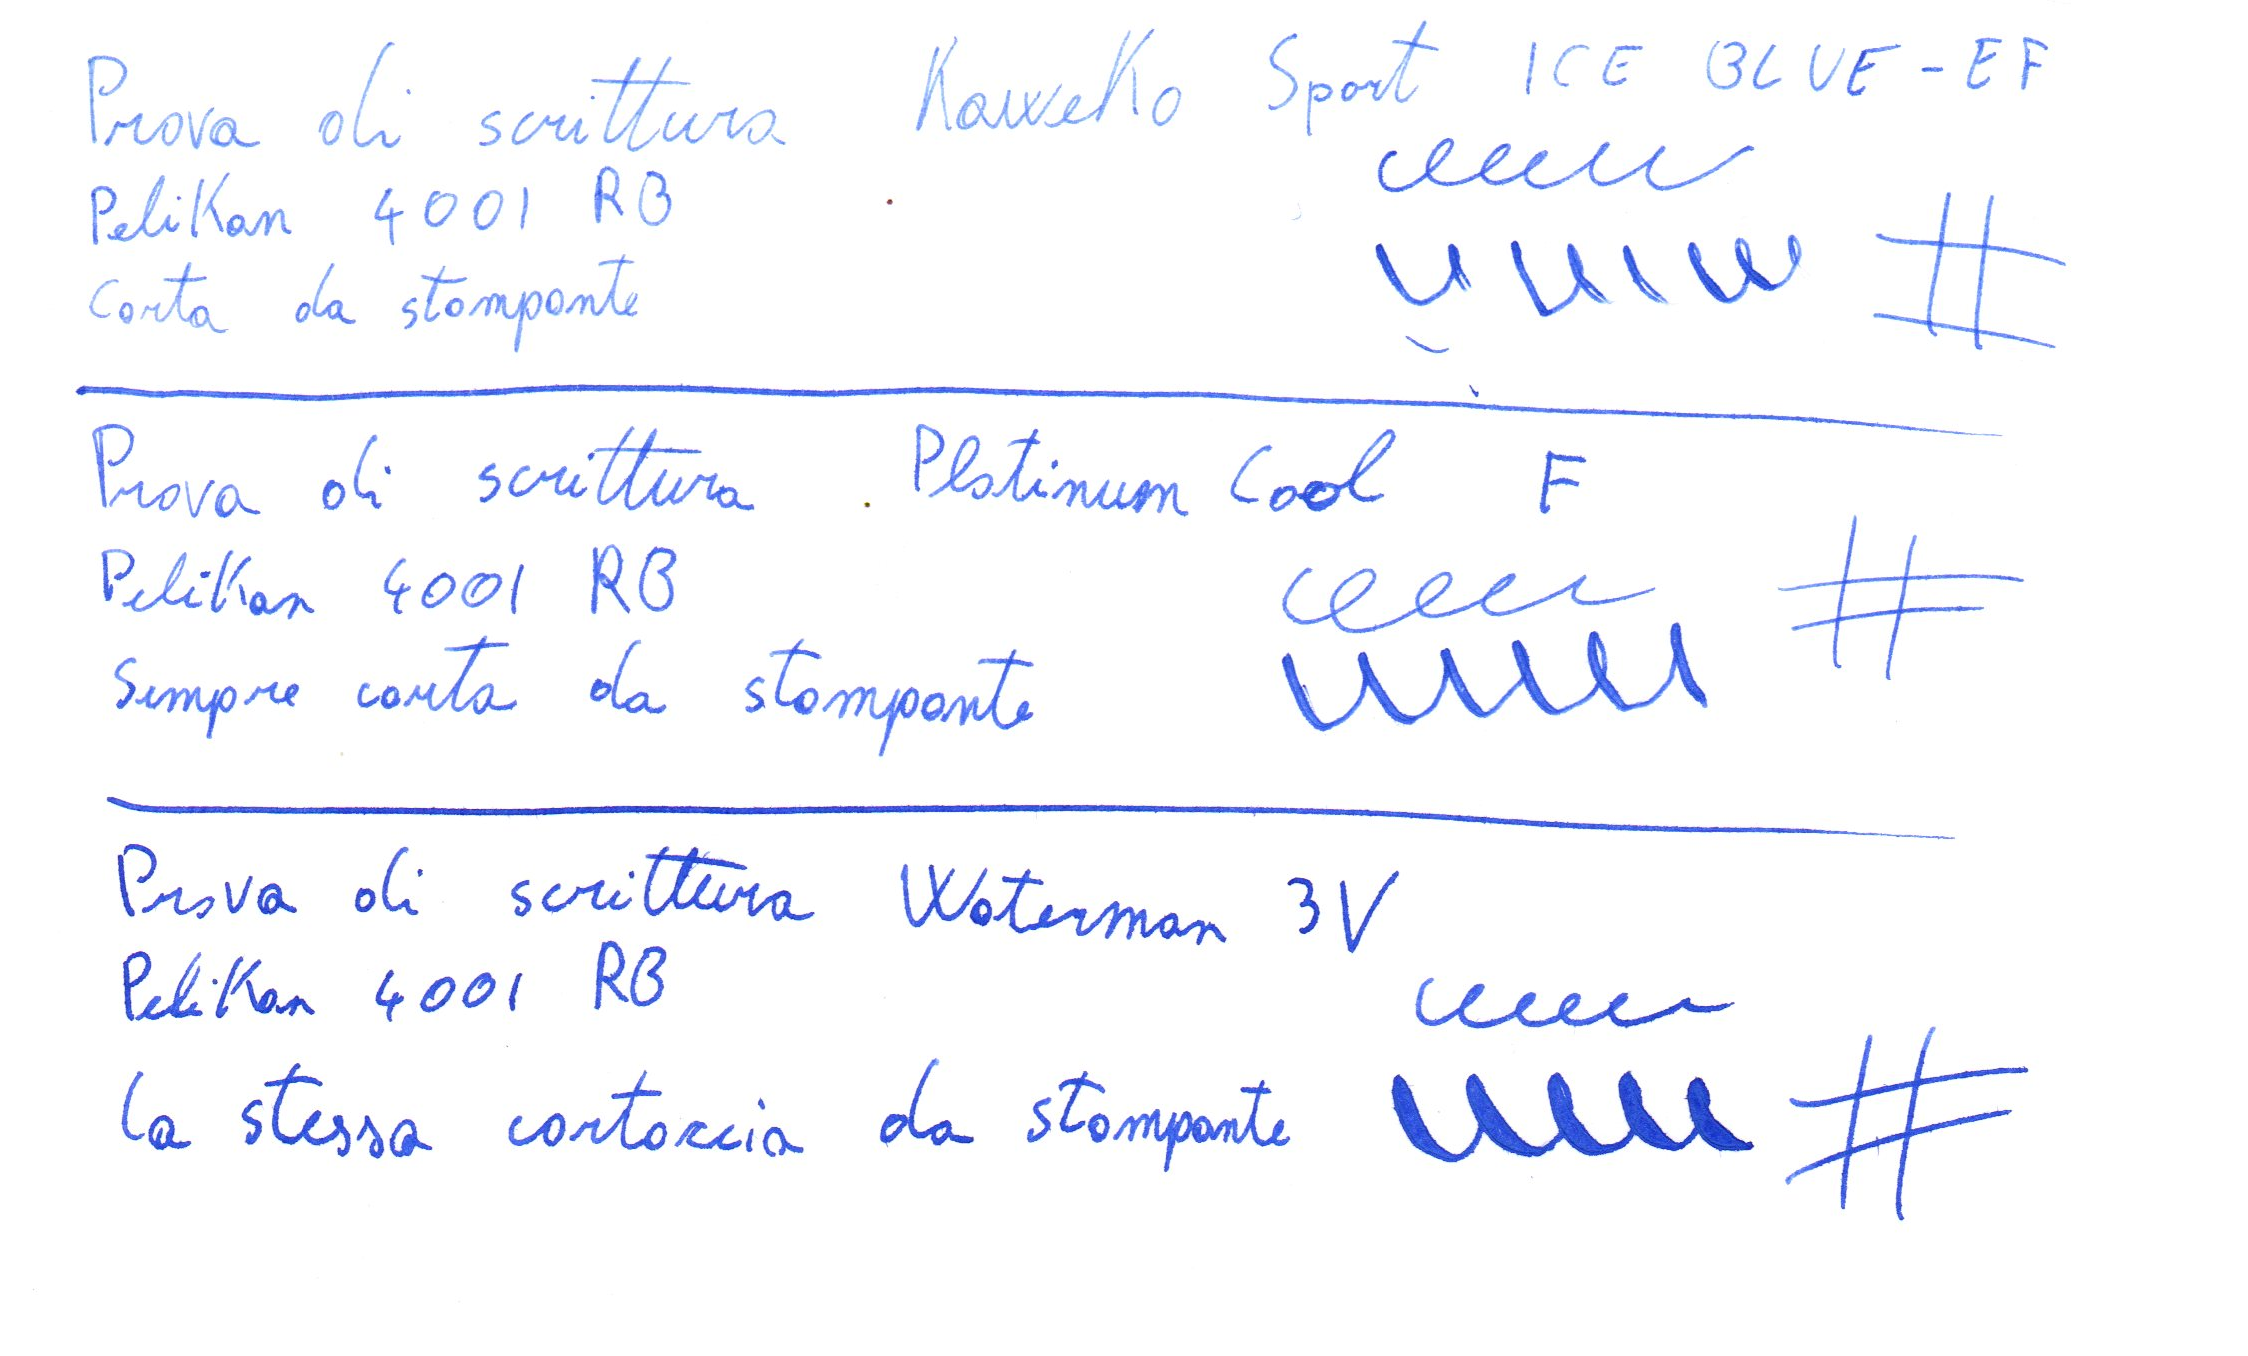 Prova di scrittura KaweKo Sport ICE BLUE - EF
PeliKan 4001 RB
Carta da stampante
Prova di scrittura Platinum Cool F
PeliKan 4001 RB
Sempre carta da stampante
Prova di scrittura Waterman 3V
PeliKan 4001 RB
la stessa cartaccia da stampante